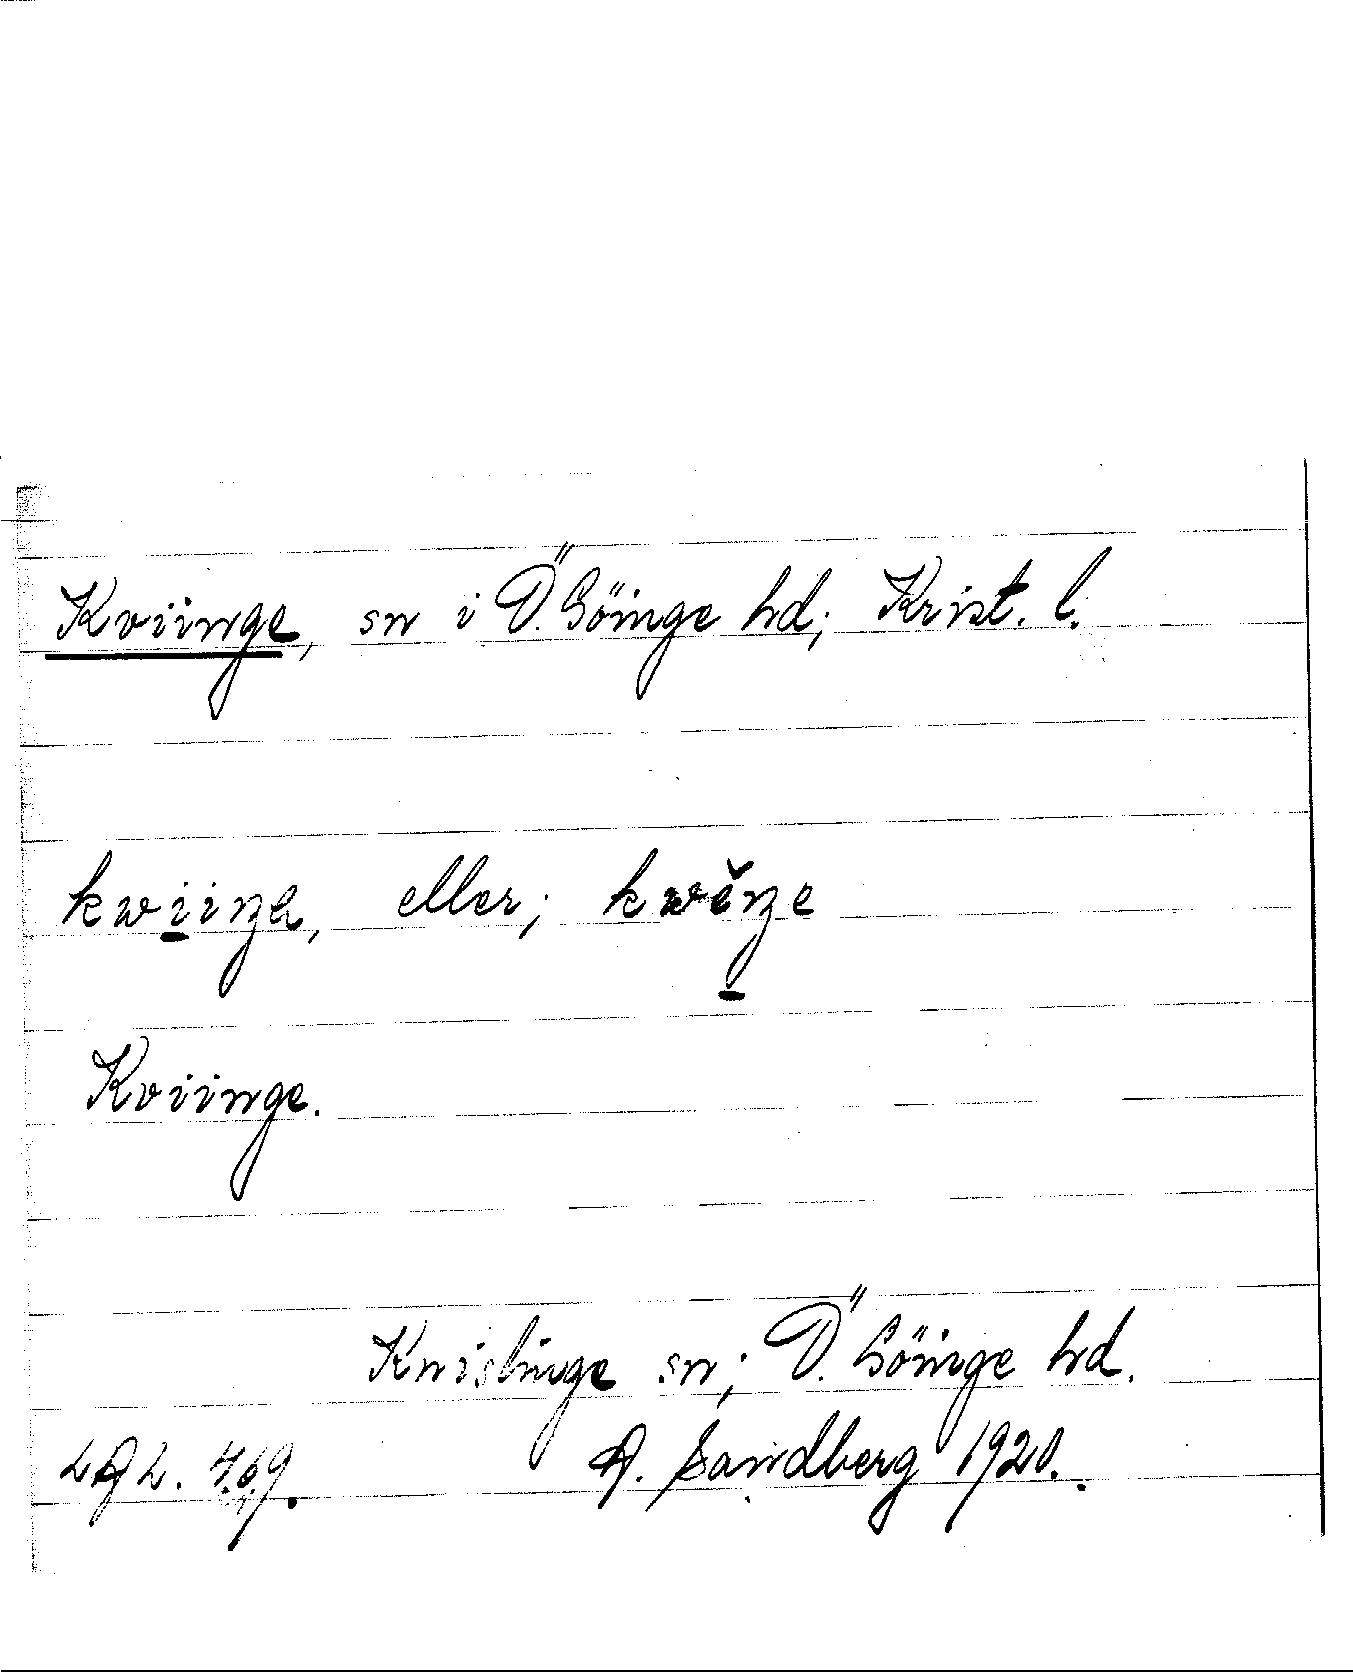 Kviinge, sn i Ö. Göinge hd; Krist. l.
kwiinze, eller; kwěnze
Kviinge.
Knislinge sn; Ö. Göinge hd.
LAL. 469. A. Sandberg 1920.